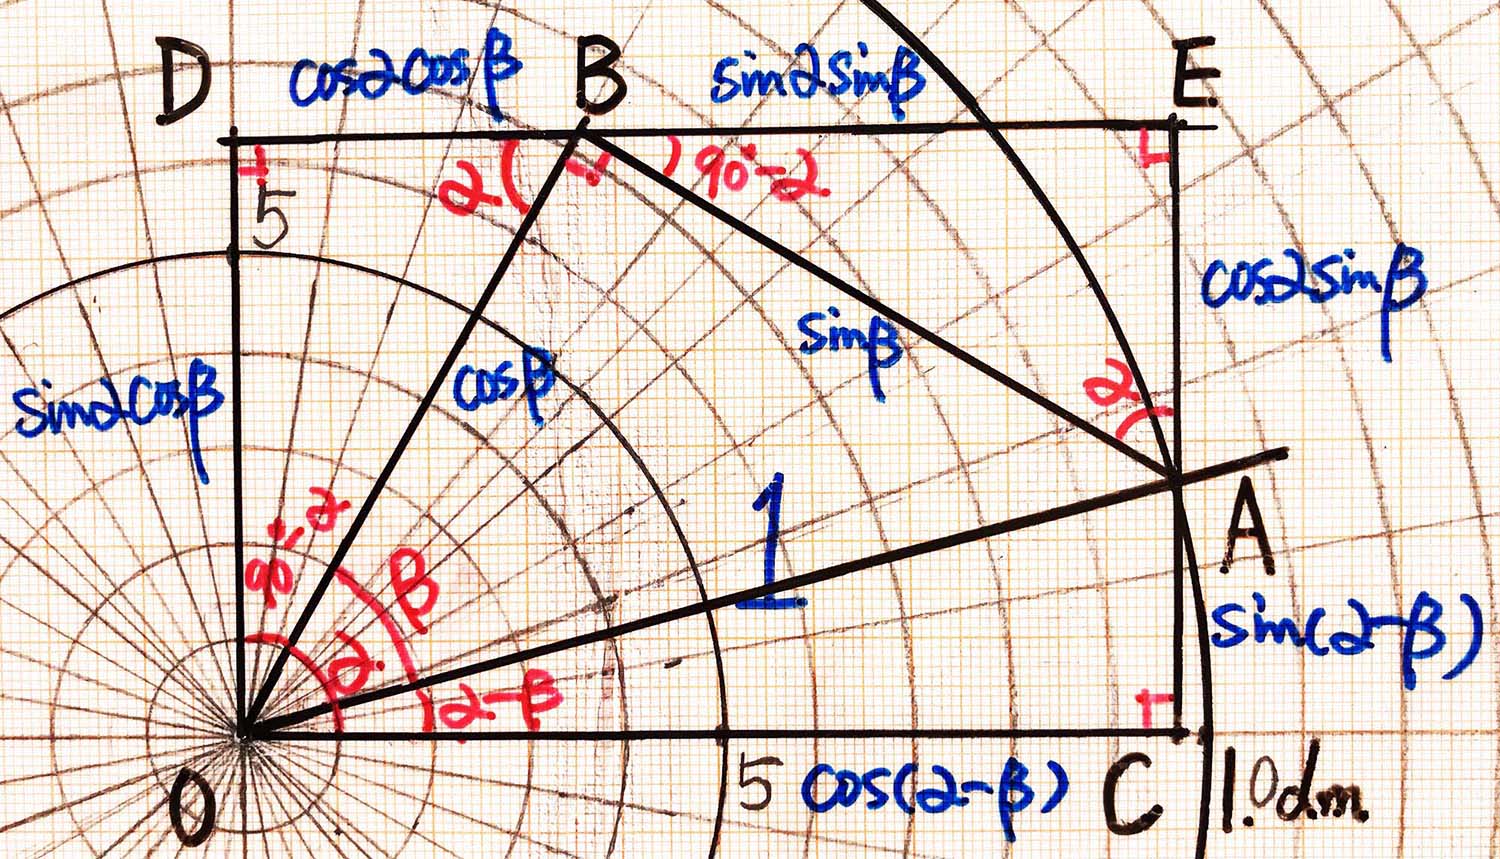 D
cosαcosβ
B
sinαsinβ
E
α
90°-α
5
cosαsinβ
sinβ
cosβ
sinαcosβ
α
90°-α
β
1
A
α
α-β
sin(α-β)
O
5
cos(α-β)
C
1.0dm.